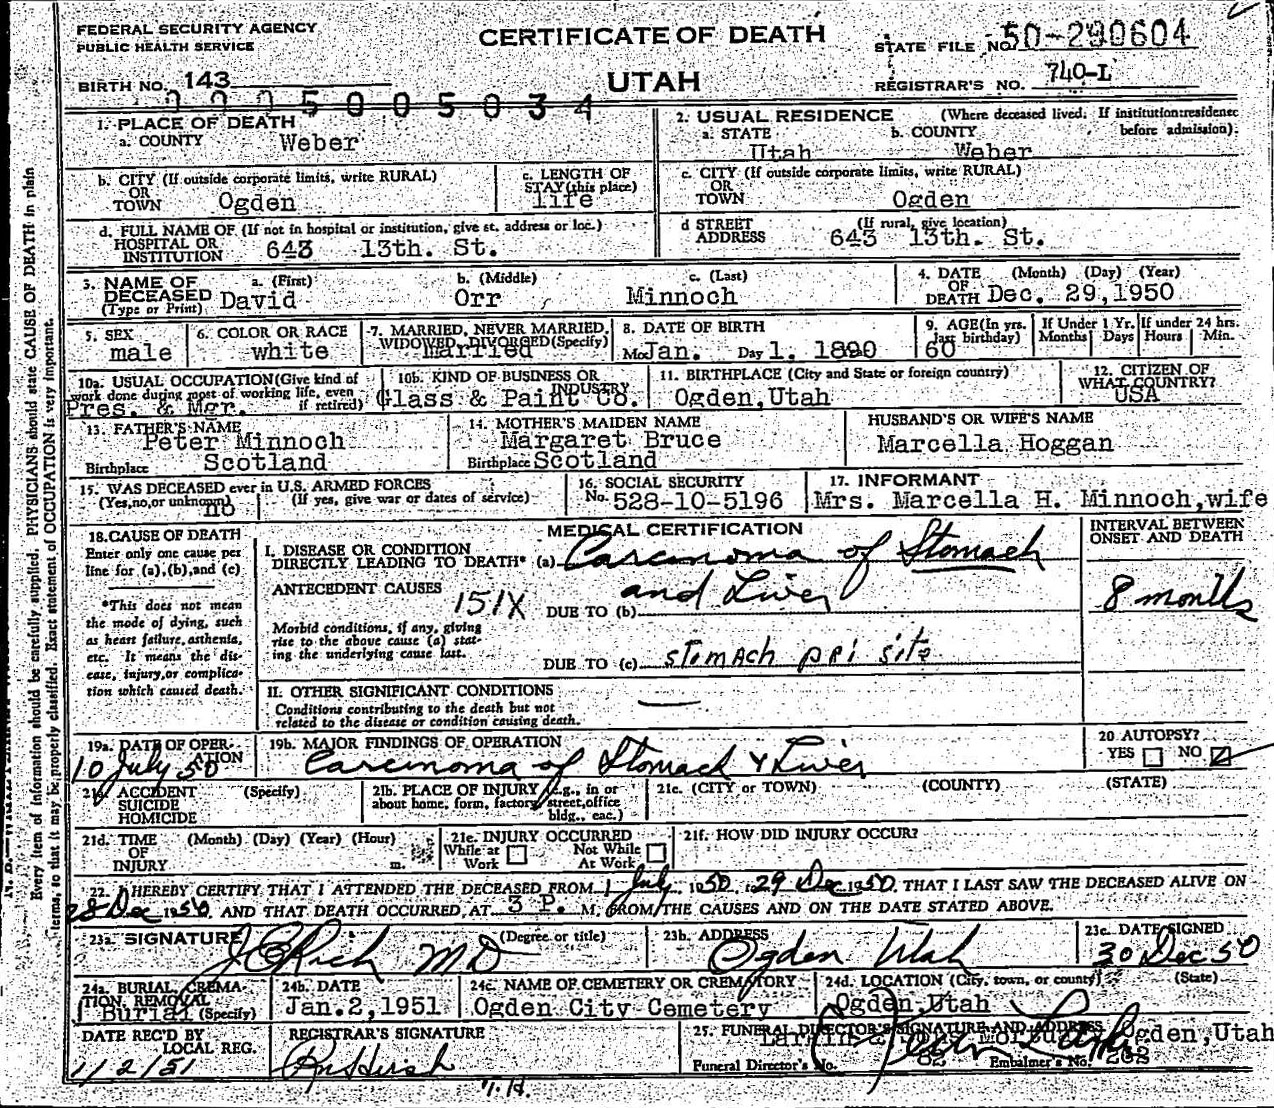 FEDERAL SECURITY AGENCY
PUBLIC HEALTH SERVICE
CERTIFICATE OF DEATH
STATE FILE NO. 50-290604
BIRTH NO. 143
UTAH
REGISTRAR'S NO. 740-L
0005005034
1. PLACE OF DEATH
a. COUNTY Weber
2. USUAL RESIDENCE (Where deceased lived. If institution:residence before admission).
a. STATE Utah b. COUNTY Weber
b. CITY (If outside corporate limits, write RURAL)
OR
TOWN Ogden
c. LENGTH OF
STAY (this place)
life
c. CITY (If outside corporate limits, write RURAL)
OR
TOWN Ogden
d. FULL NAME OF (If not in hospital or institution, give st. address or loc.)
HOSPITAL OR
INSTITUTION 643 13th. St.
d STREET (If rural, give location)
ADDRESS 643 13th. St.
3. NAME OF DECEASED (Type or Print)
a. (First) b. (Middle) c. (Last)
David Orr Minnoch
4. DATE (Month) (Day) (Year)
OF
DEATH Dec. 29,1950
5. SEX
male
6. COLOR OR RACE
white
7. MARRIED, NEVER MARRIED,
WIDOWED, DIVORCED (Specify)
Married
8. DATE OF BIRTH
Mo Jan. Day 1. 1890
9. AGE (In yrs. last birthday)
60
If Under 1 Yr.
Months Days
If under 24 hrs.
Hours Min.
10a. USUAL OCCUPATION (Give kind of
work done during most of working life, even
if retired)
Pres. & Mgr.
10b. KIND OF BUSINESS OR
INDUSTRY
Glass & Paint Co.
11. BIRTHPLACE (City and State or foreign country)
Ogden,Utah
12. CITIZEN OF
WHAT COUNTRY?
USA
13. FATHER'S NAME
Peter Minnoch
Birthplace Scotland
14. MOTHER'S MAIDEN NAME
Margaret Bruce
Birthplace Scotland
HUSBAND'S OR WIFE'S NAME
Marcella Hoggan
15. WAS DECEASED ever in U.S. ARMED FORCES
(Yes,no,or unknown) (If yes, give war or dates of service)
no
16. SOCIAL SECURITY
No. 528-10-5196
17. INFORMANT
Mrs. Marcella H. Minnoch,wife
18. CAUSE OF DEATH
Enter only one cause per
line for (a),(b),and (c)
*This does not mean
the mode of dying, such
as heart failure, asthenia,
etc. It means the dis-
ease, injury,or complica-
tion which caused death.
MEDICAL CERTIFICATION
I. DISEASE OR CONDITION
DIRECTLY LEADING TO DEATH* (a) Carcinoma of Stomach
and Liver
ANTECEDENT CAUSES
151X
DUE TO (b)
Morbid conditions, if any, giving
rise to the above cause (a) stat-
ing the underlying cause last.
DUE TO (c) stomach pri site
II. OTHER SIGNIFICANT CONDITIONS
Conditions contributing to the death but not
related to the disease or condition causing death.
INTERVAL BETWEEN
ONSET AND DEATH
8 months
19a. DATE OF OPER-
ATION
10 July 50
19b. MAJOR FINDINGS OF OPERATION
Carcinoma of Stomach & Liver
20 AUTOPSY?
YES NO
21a. ACCIDENT (Specify)
SUICIDE
HOMICIDE
21b. PLACE OF INJURY (e.g., in or
about home, form, factory, street,office
bldg., eac.)
21c. (CITY or TOWN) (COUNTY) (STATE)
21d. TIME (Month) (Day) (Year) (Hour)
OF
INJURY m.
21e. INJURY OCCURRED
While at Work Not While At Work
21f. HOW DID INJURY OCCUR?
22. I HEREBY CERTIFY THAT I ATTENDED THE DECEASED FROM 1 July 1950, to 29 Dec 1950, THAT I LAST SAW THE DECEASED ALIVE ON
28 Dec 1950 AND THAT DEATH OCCURRED AT 3 P. M. FROM THE CAUSES AND ON THE DATE STATED ABOVE.
23a. SIGNATURE (Degree or title)
J C Rich MD
23b. ADDRESS
Ogden Utah
23c. DATE SIGNED
30 Dec 50
24a. BURIAL, CREMA-
TION, REMOVAL
(Specify)
Burial
24b. DATE
Jan.2,1951
24c. NAME OF CEMETERY OR CREMATORY
Ogden City Cemetery
24d. LOCATION (City, town, or county) (State)
Ogden,Utah
DATE REC'D BY
LOCAL REG.
1/2/51
REGISTRAR'S SIGNATURE
25. FUNERAL DIRECTOR'S SIGNATURE AND ADDRESS
Larkin & Sons Mortuary Ogden,Utah
Funeral Director's No. 82 Embalmer's No.
Every item of information should be carefully supplied. PHYSICIANS should state CAUSE OF DEATH in plain
terms, so that it may be properly classified. Exact statement of OCCUPATION is very important.